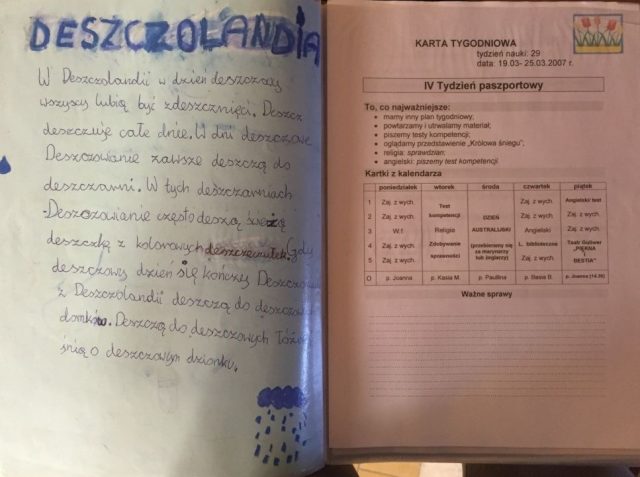 DESZCZOLANDIA
W Deszczolandii w dzień deszczowy
wszyscy lubią być zdeszcznięci. Deszcz
deszczuje całe dnie. W dni deszczowe
Deszczowanie zawsze deszczą do
deszczarni. W tych deszczarniach
Deszczowanie często deszą
deszczkę z kolorowych Gdy
deszczowy dzień się kończy
z Deszczolandii deszczą do
domków. Deszczą do deszczowych
śnią o deszczowym dzionku.
KARTA TYGODNIOWA
tydzień nauki: 29
data: 19.03- 25.03.2007 r.
IV Tydzień paszportowy
To, co najważniejsze:
mamy inny plan tygodniowy;
powtarzamy i utrwalamy materiał;
piszemy testy kompetencji;
oglądamy przedstawienie „Królowa śniegu”;
religia: sprawdzian;
angielski: piszemy test kompetencji.
Kartki z kalendarza
poniedziałek wtorek środa czwartek piątek
1 Zaj. z wych. Test kompetencji Zaj. z wych. Angielski/ test
2 Zaj. z wych. DZIEŃ Zaj. z wych. Zaj. z wych.
3 W.f. Religia AUSTRALIJSKI Angielski
4 Zaj. z wych. Zdobywanie sprawności (przebieramy się za marynarzy lub żeglarzy) L. biblioteczna Teatr Guliwer „PIĘKNA I BESTIA”
5 Zaj. z wych. Zaj. z wych.
O p. Joanna p. Kasia M. p. Paulina p. Basia B. p. Joanna
Ważne sprawy